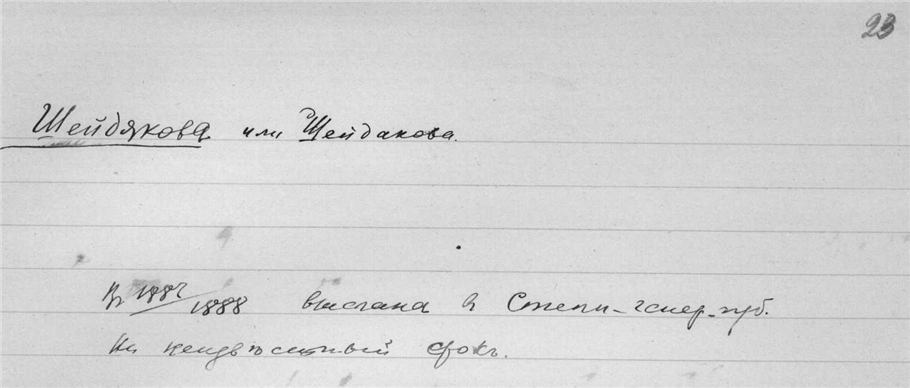 23
Шейдякова или Шейдакова.
В 1887/1888 выслана в Степн-генер-губ.
на неизвѣстный срокъ.